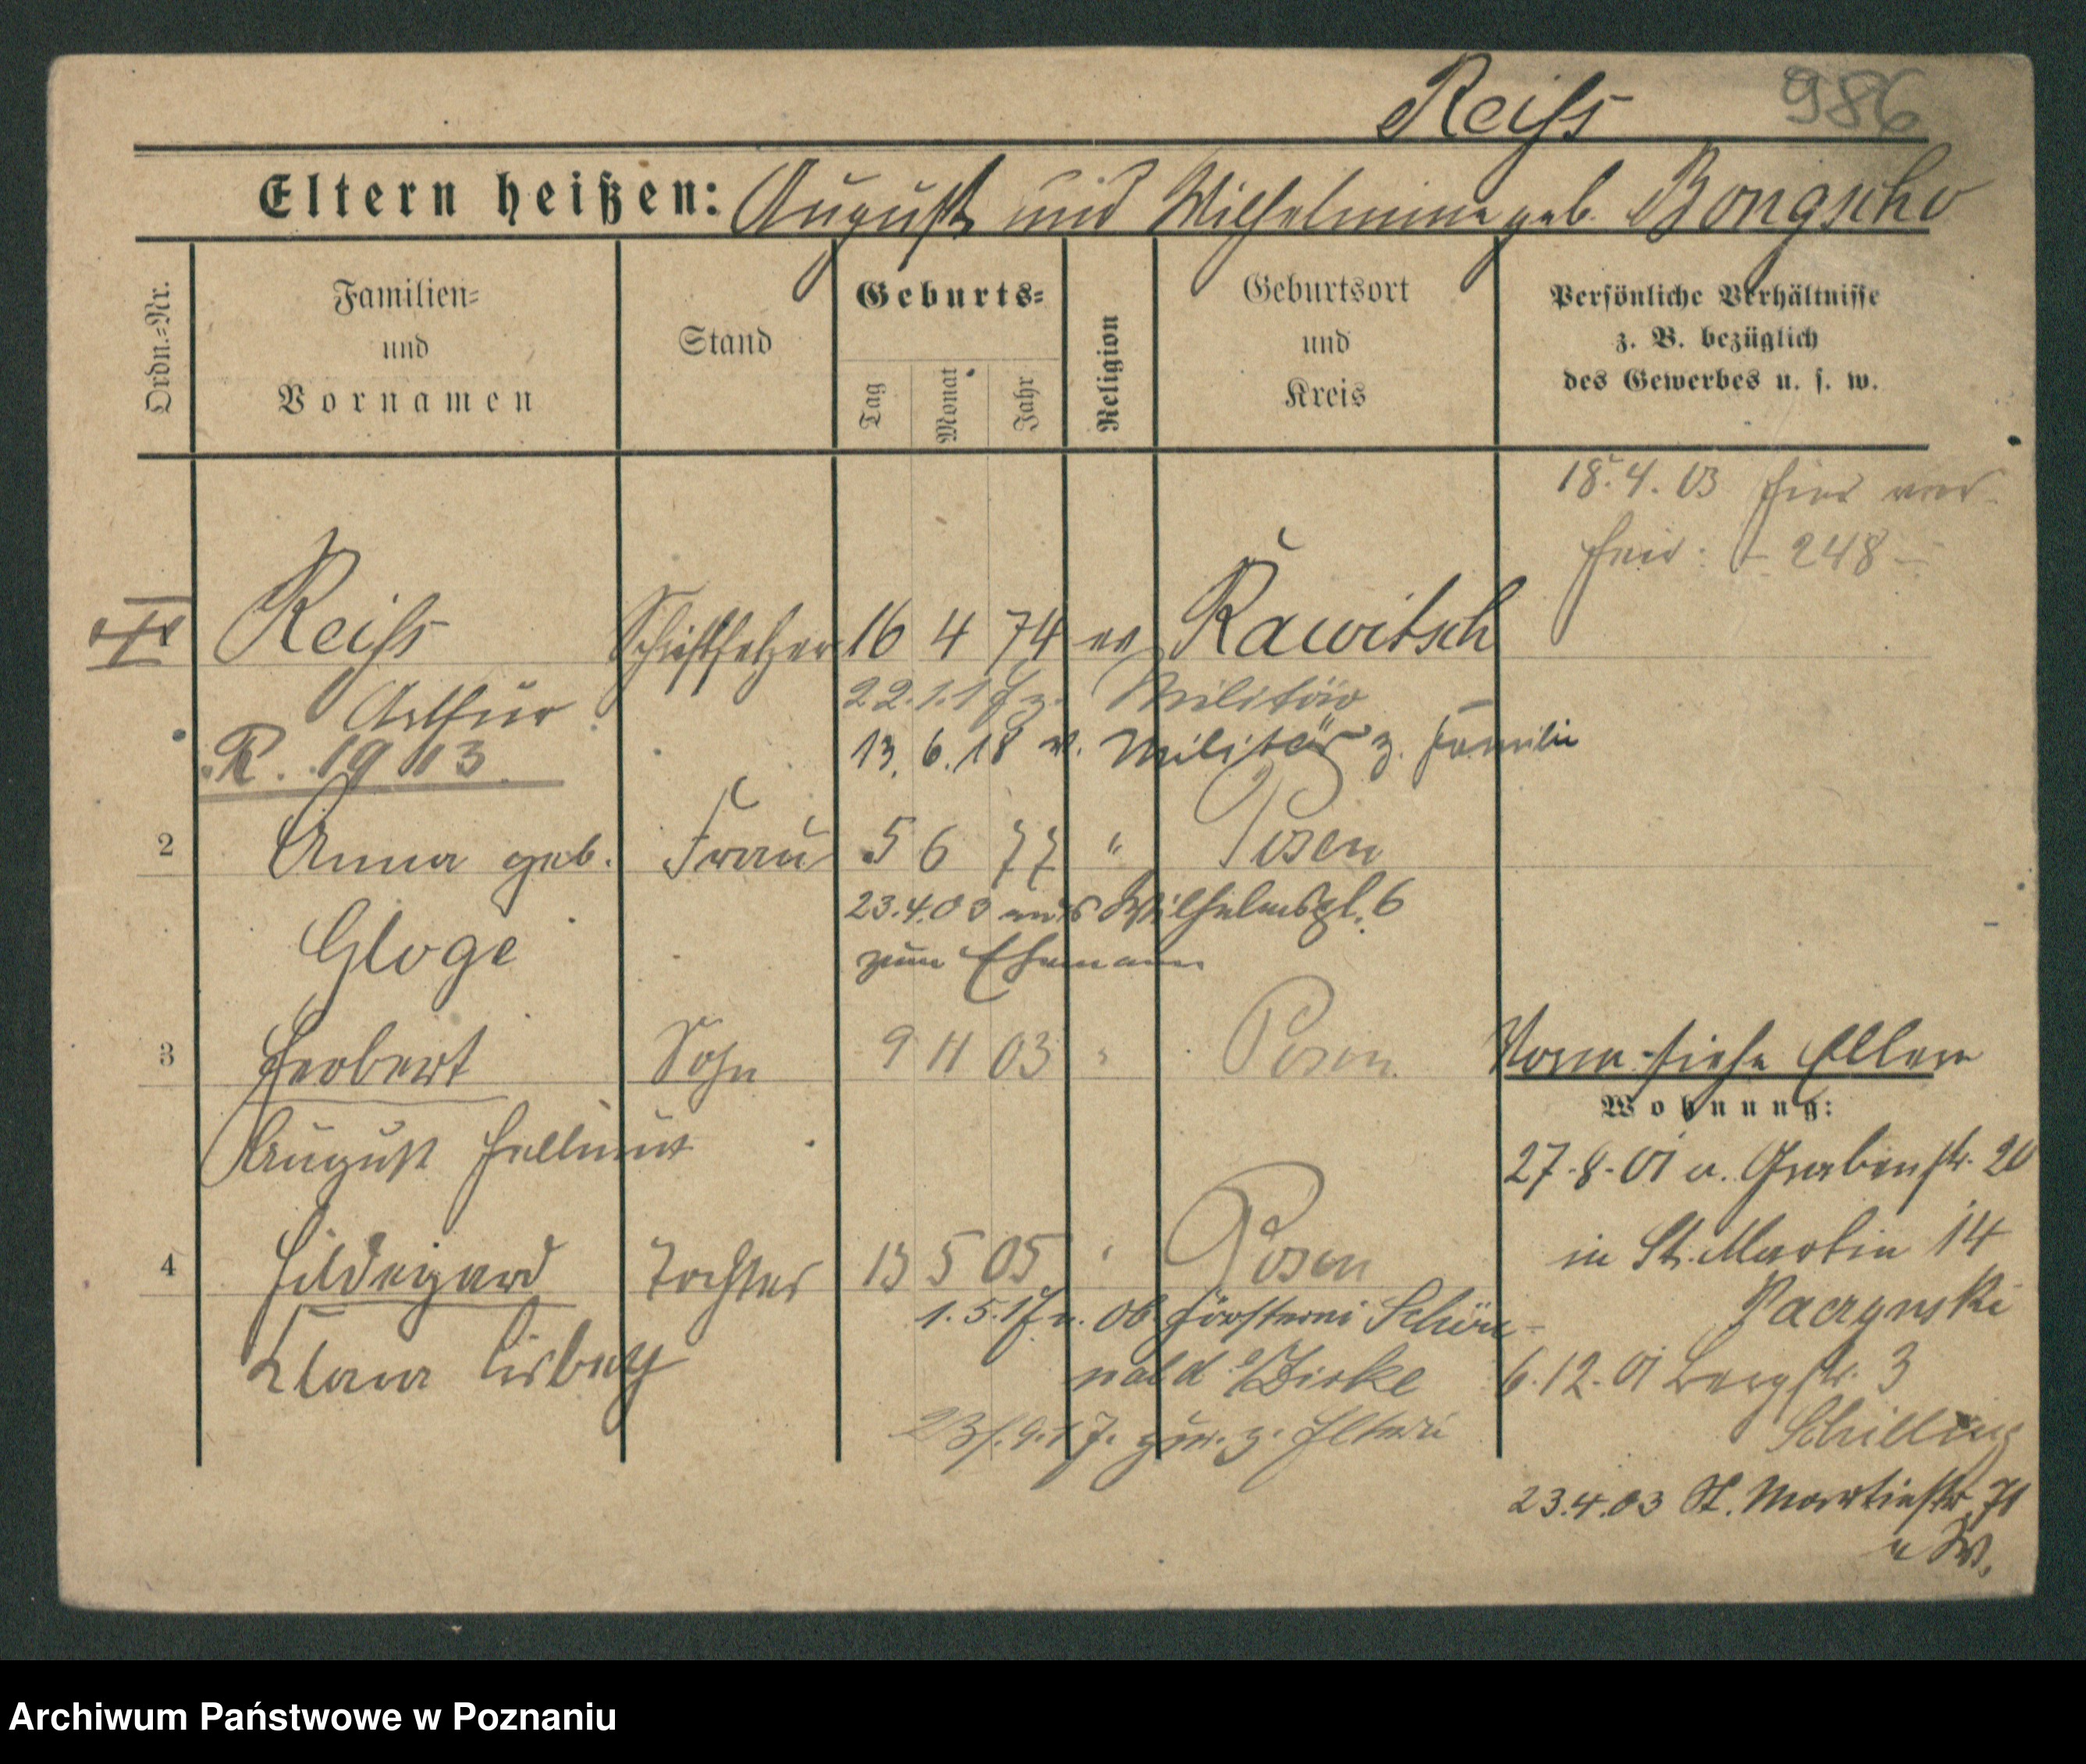 Reiſs 986
Eltern heißen: August und Wilhelmine geb. Bongscho
Ordn.=Nr.
Familien=
und
Vornamen
Stand
Geburts=
Tag
Monat
Jahr
Religion
Geburtsort
und
Kreis
Persönliche Verhältnisse
z. B. bezüglich
des Gewerbes u. s. w.
18.4.03 hier ver-
heir: 248
Reiſs Schriftsetzer 16 4 74 ev Rawitsch
Arthur 22.1.17 z. Militär
R. 1913 13.6.18 v. Militär z. Familie
2 Anna geb. Frau 5 6 77 " Posen
23.4.03 aus Wilhelmspl. 6
Gloge zum Ehemann
3 Herbert Sohn 9 11 03 " Posen
siehe Eltern
Wohnung:
August Hellmut
27.8.01 a. Grabenstr. 20
in St. Martin 14
4 Hildegard Tochter 13 5 05 " Posen
Paczynski
1.5.17 n. Ob Försterei Schön-
Klara Lisbeth wald b/Zirke
6.12.01 Bergstr. 3
Schilling
23.9.17. zur. z. Eltern
23.4.03 St. Martinstr. 71
Archiwum Państwowe w Poznaniu